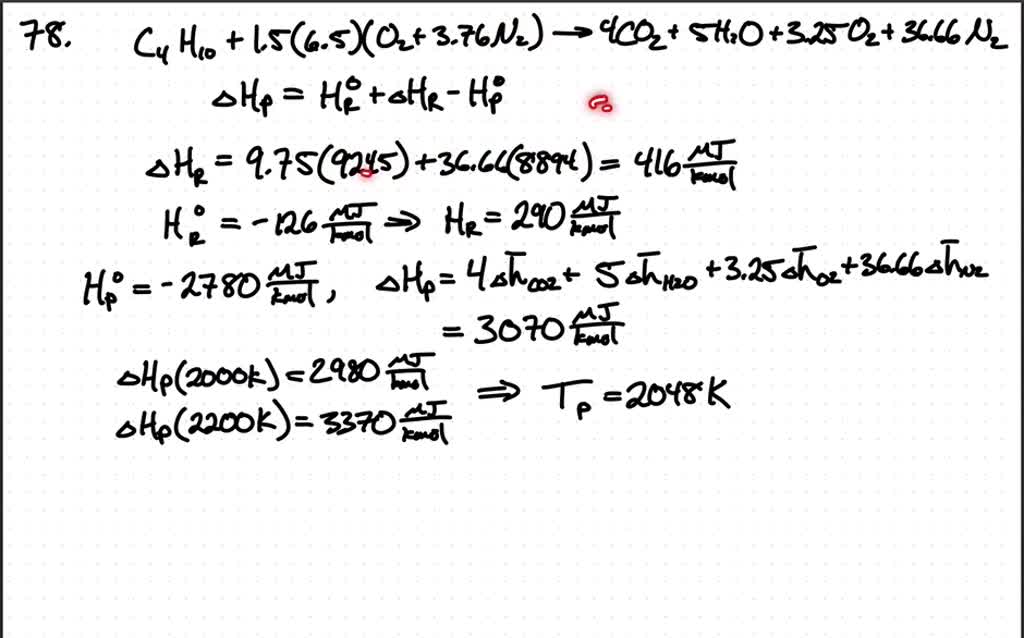 78. C₄H₁₀ + 1.5(6.5)(O₂ + 3.76N₂) → 4CO₂ + 5H₂O + 3.25O₂ + 36.66N₂
ΔHₚ = H°ᵣ + ΔHᵣ - H°ₚ
ΔHᵣ = 9.75(9245) + 36.66(8894) = 416 MJ/kmol
H°ᵣ = -126 MJ/kmol ⇒ Hᵣ = 290 MJ/kmol
H°ₚ = -2780 MJ/kmol, ΔHₚ = 4Δh̄CO2 + 5Δh̄H2O + 3.25Δh̄O2 + 36.66Δh̄N2
= 3070 MJ/kmol
ΔHₚ(2000K) = 2980 MJ/kmol ⇒ Tₚ = 2048K
ΔHₚ(2200K) = 3370 MJ/kmol